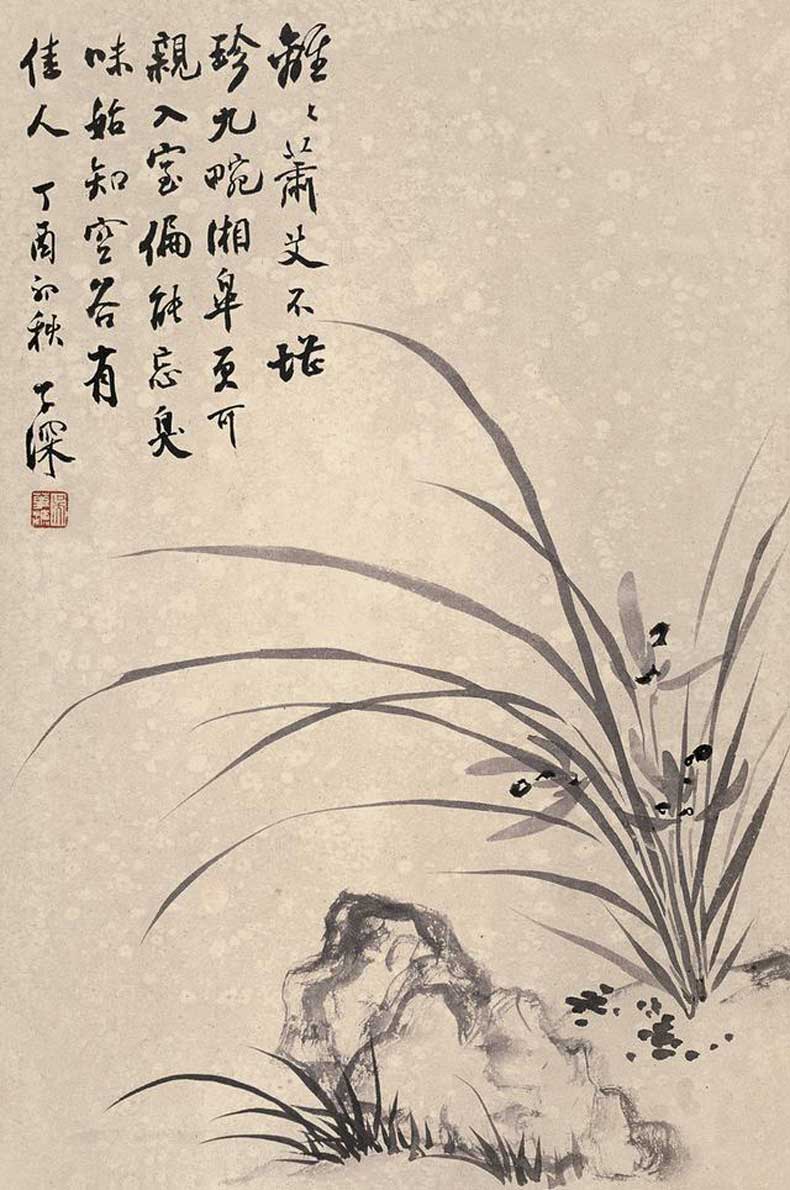 離〻蕭艾不堪
珍九畹湘皋更可
親入室偏能忘臭
味始知空谷有
佳人 丁酉初秋 子深